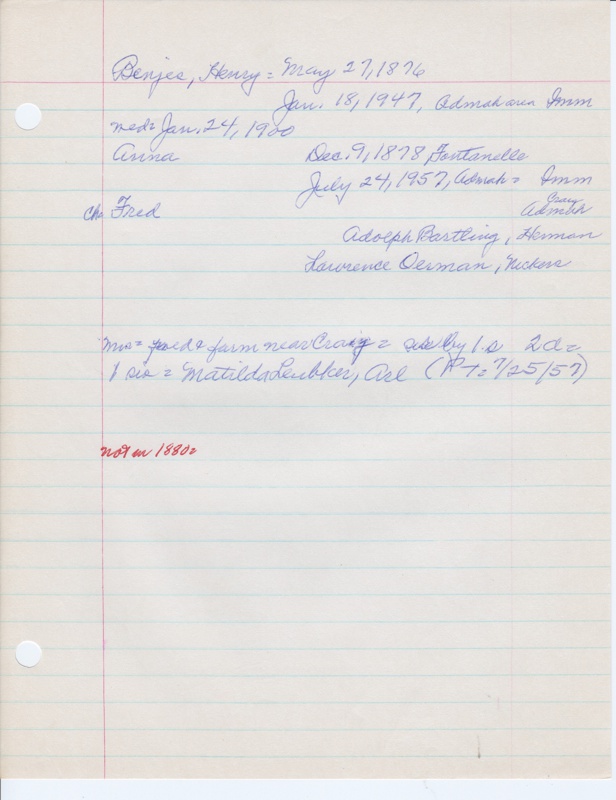 Benjes, Henry = May 27, 1876
Jan. 18, 1947, Admah area Imm
med= Jan. 24, 1900
Anna Dec. 9, 1878, Fontanelle
July 24, 1957, Admah = Imm
Craig
Ch= Fred Admah
Adolph Bartling, Herman
Lawrence Oerman, Nickers
Mrs= farm near Craig = by 1 s 2 d =
1 sis = Matilda Leubker, Arl (PT= 7/25/57)
not in 1880=